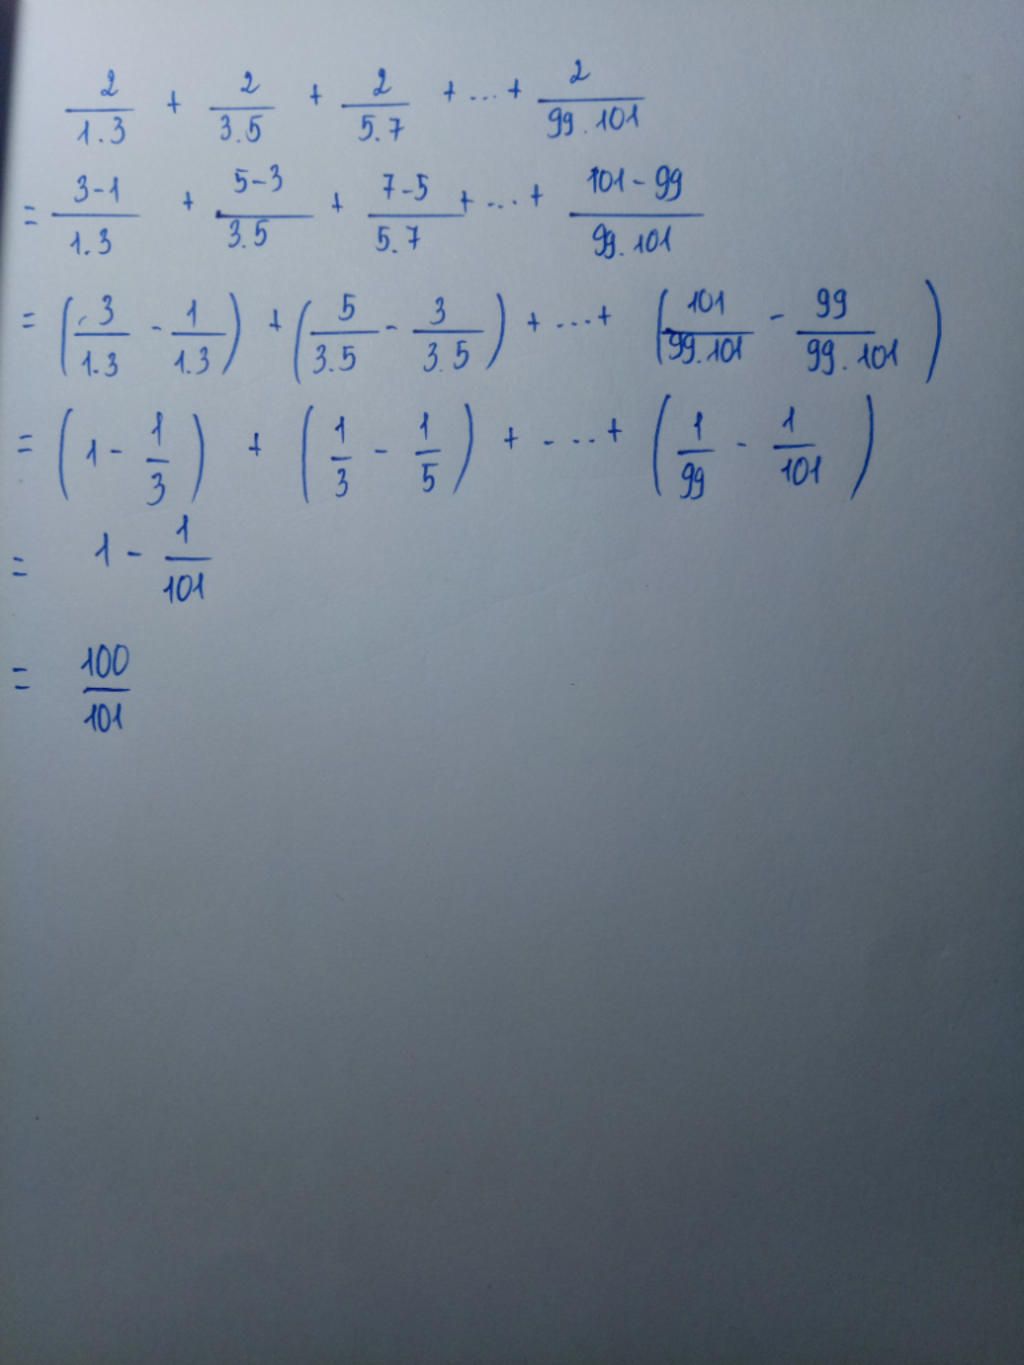 2/1.3 + 2/3.5 + 2/5.7 + ... + 2/99.101
= 3-1/1.3 + 5-3/3.5 + 7-5/5.7 + ... + 101-99/99.101
= (3/1.3 - 1/1.3) + (5/3.5 - 3/3.5) + ... + (101/99.101 - 99/99.101)
= (1 - 1/3) + (1/3 - 1/5) + ... + (1/99 - 1/101)
= 1 - 1/101
= 100/101